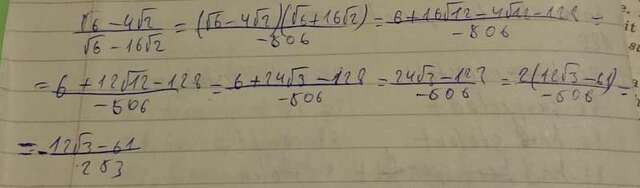 (√6 - 4√2)/(√6 - 16√2) = ((√6 - 4√2)(√6 + 16√2))/(-506) = (6 + 16√12 - 4√12 - 128)/(-506) =
= (6 + 12√12 - 128)/(-506) = (6 + 24√3 - 128)/(-506) = (24√3 - 122)/(-506) = (2(12√3 - 61))/(-506) =
= -(12√3 - 61)/253